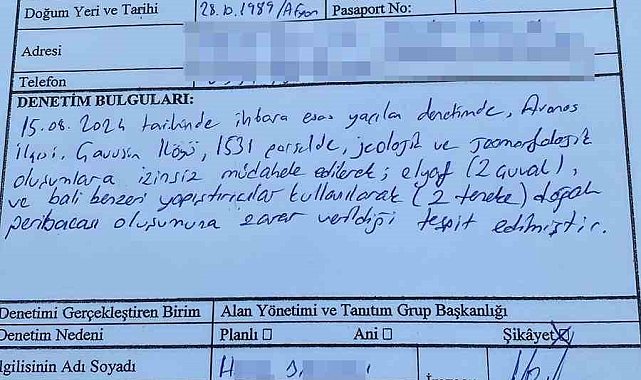 Doğum Yeri ve Tarihi 28.10.1989/Afyon Pasaport No:
Adresi
Telefon
DENETİM BULGULARI:
15.08.2024 tarihinde ihbara esas yapılan denetimde, Avanos
İlçesi. Çavuşin Köyü, 1531 parselde, jeolojik ve jeomorfolojik
oluşumlara izinsiz müdahele edilerek; elyaf (2 çuval),
ve bali benzeri yapıştırıcılar kullanılarak (2 teneke) doğal
peribacası oluşumuna zarar verildiği tespit edilmiştir.
Denetimi Gerçekleştiren Birim Alan Yönetimi ve Tanıtım Grup Başkanlığı
Denetim Nedeni Planlı ☐ Ani ☐ Şikâyet ☒
İlgilisinin Adı Soyadı